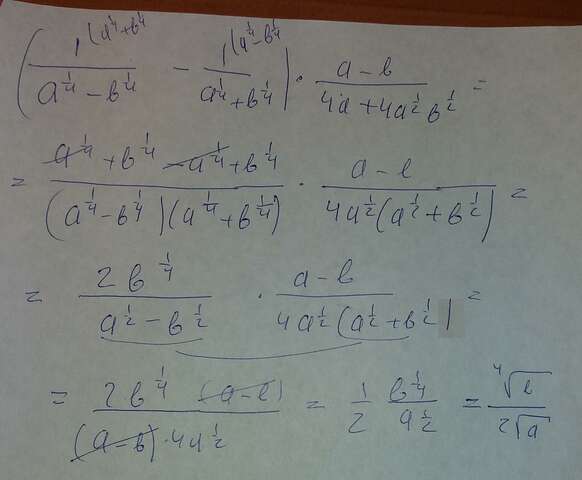 (1^{(a^{1/4}+b^{1/4}} / (a^{1/4} − b^{1/4}) − 1^{(a^{1/4}−b^{1/4}} / (a^{1/4}+b^{1/4})) · (a − b) / (4a + 4a^{1/2} b^{1/2}) =
= (a^{1/4} + b^{1/4} − a^{1/4} + b^{1/4}) / ((a^{1/4} − b^{1/4})(a^{1/4} + b^{1/4})) · (a − b) / (4a^{1/2}(a^{1/2} + b^{1/2})) =
= 2b^{1/4} / (a^{1/2} − b^{1/2}) · (a − b) / (4a^{1/2}(a^{1/2} + b^{1/2})) =
= 2b^{1/4} (a − b) / ((a − b) · 4a^{1/2}) = 1/2 b^{1/4} / a^{1/2} = ⁴√b / 2√a